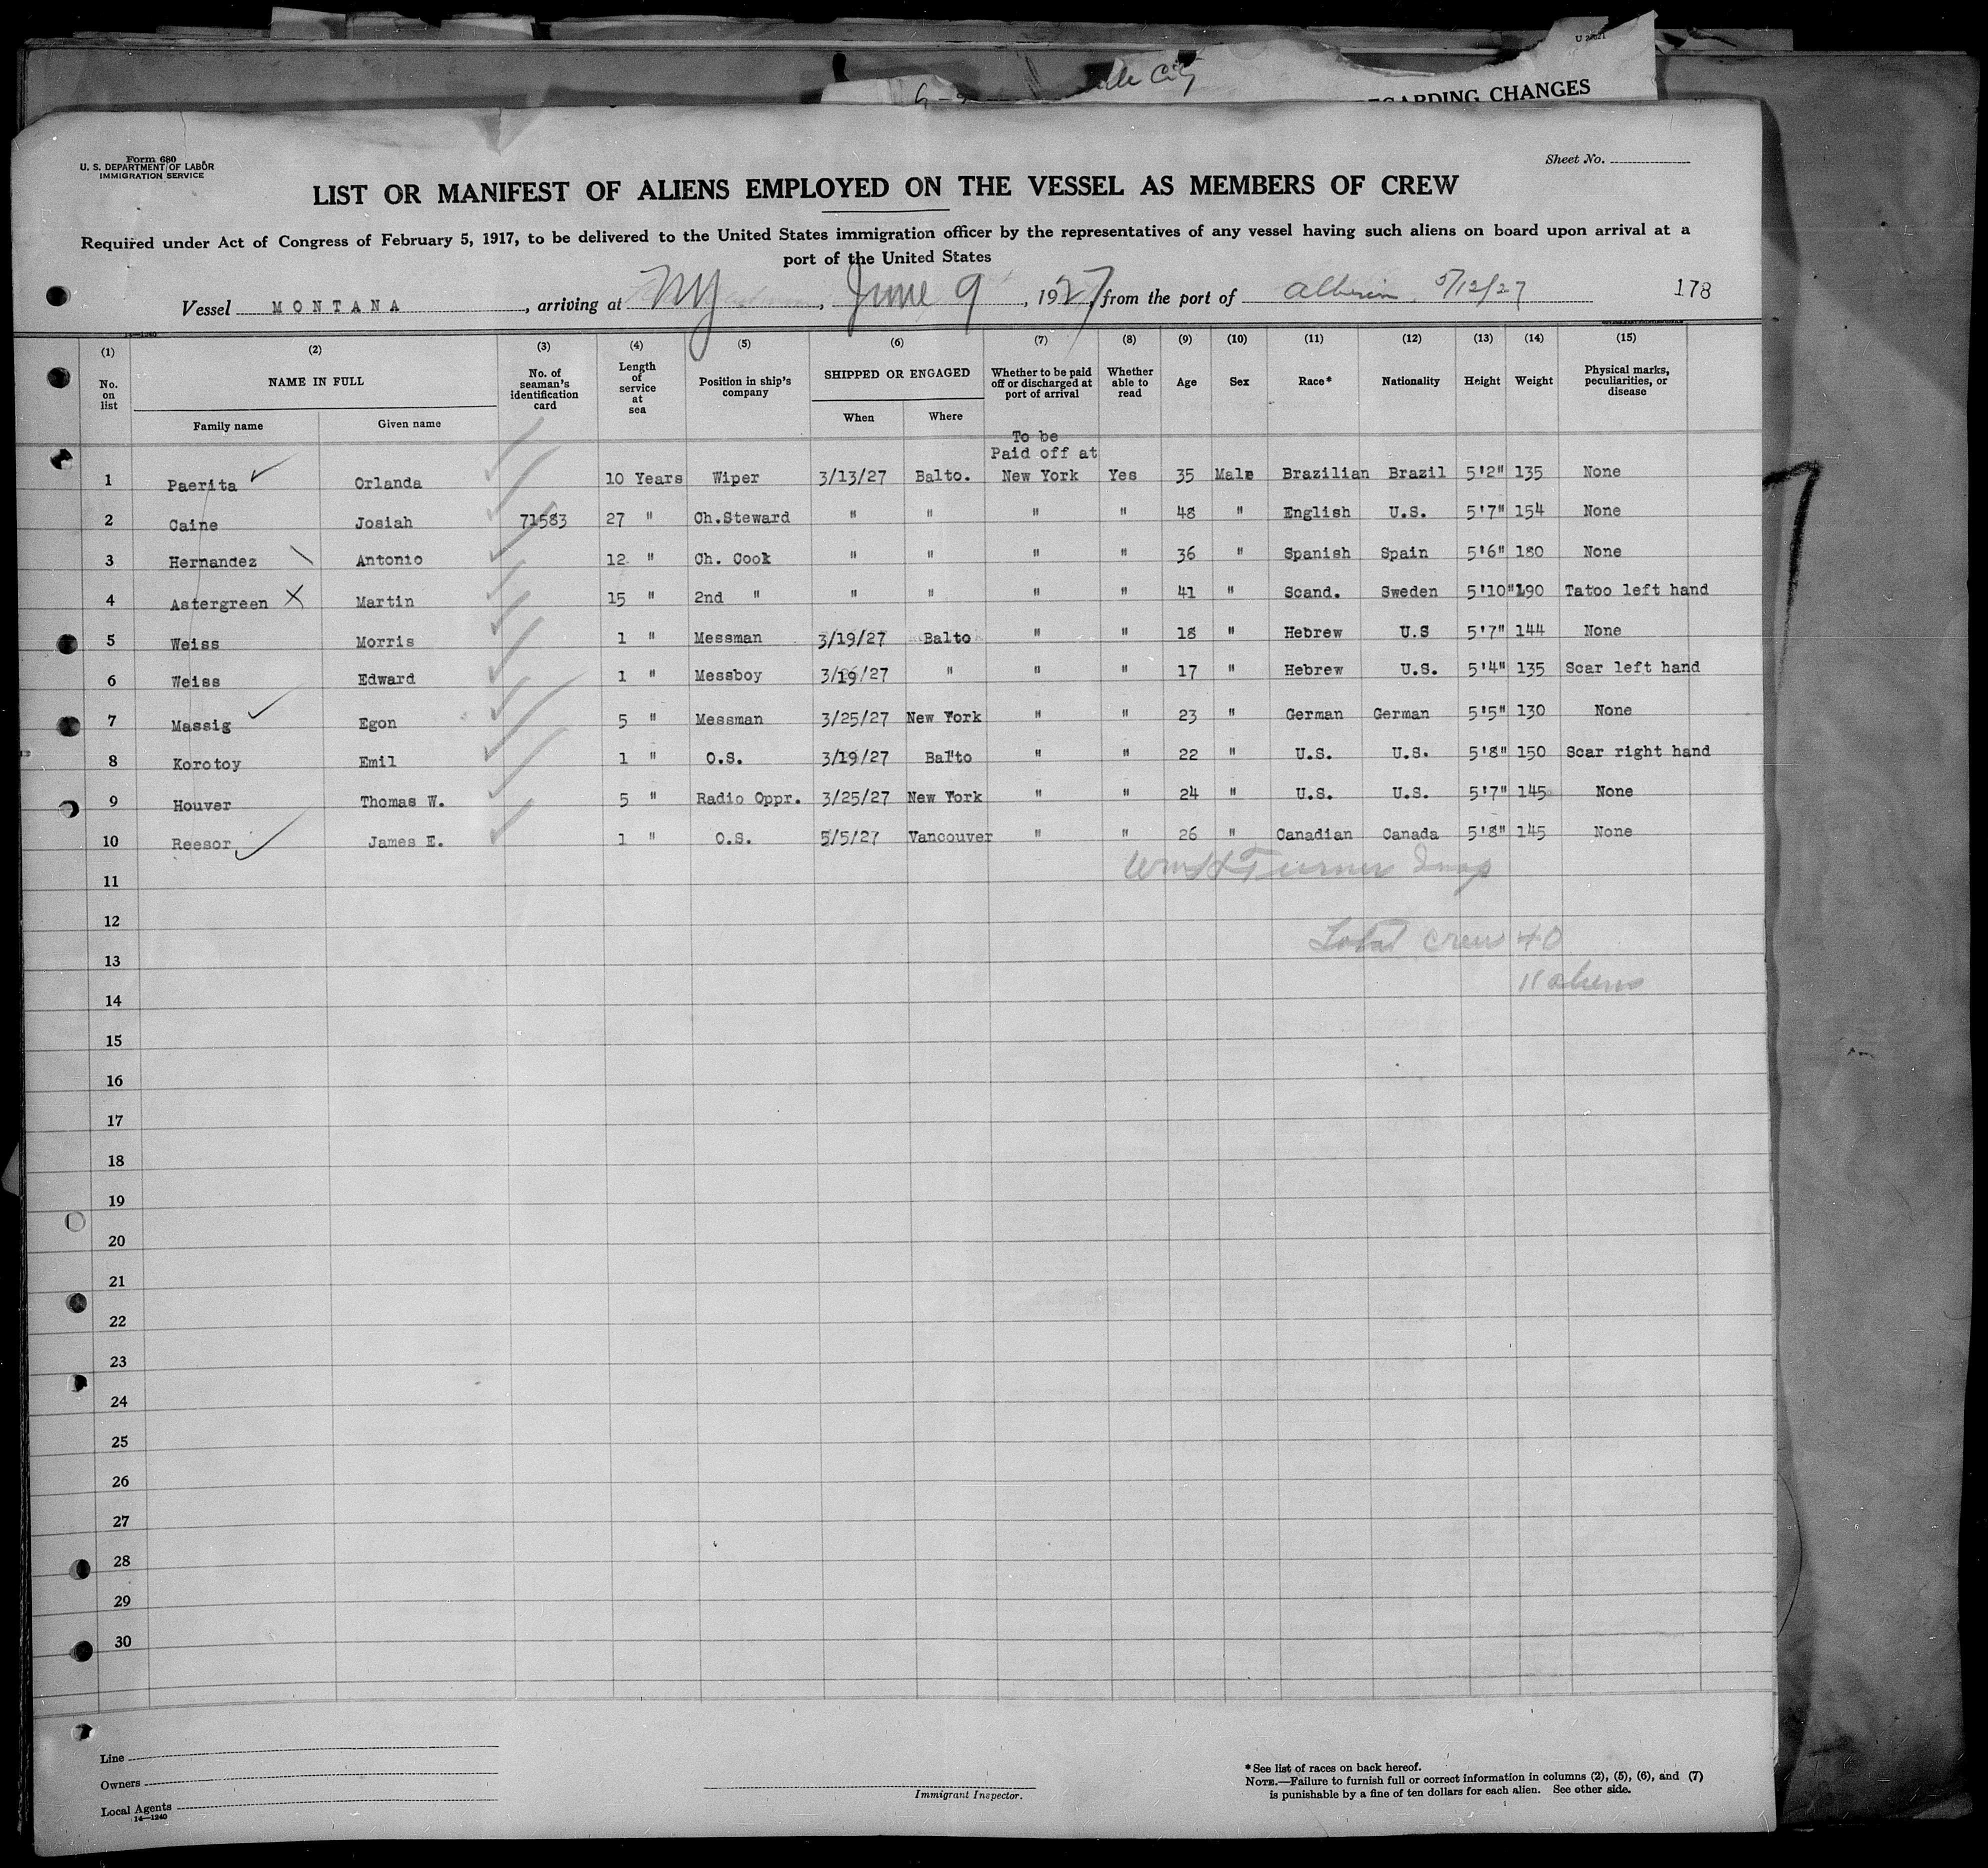 U 2
de City
REGARDING CHANGES
Form 680
U. S. DEPARTMENT OF LABOR
IMMIGRATION SERVICE
Sheet No.
LIST OR MANIFEST OF ALIENS EMPLOYED ON THE VESSEL AS MEMBERS OF CREW
Required under Act of Congress of February 5, 1917, to be delivered to the United States immigration officer by the representatives of any vessel having such aliens on board upon arrival at a
port of the United States
Vessel MONTANA, arriving at NY, June 9, 1927, from the port of 5/12/27 178
14—1240
(1) (2) (3) (4) (5) (6) (7) (8) (9) (10) (11) (12) (13) (14) (15)
No. on list NAME IN FULL No. of seaman's identification card Length of service at sea Position in ship's company SHIPPED OR ENGAGED Whether to be paid off or discharged at port of arrival Whether able to read Age Sex Race* Nationality Height Weight Physical marks, peculiarities, or disease
Family name Given name When Where
To be
Paid off at
1 Paerita Orlanda 10 Years Wiper 3/13/27 Balto. New York Yes 35 Male Brazilian Brazil 5'2" 135 None
2 Caine Josiah 71583 27 " Ch.Steward " " " " 48 " English U.S. 5'7" 154 None
3 Hernandez Antonio 12 " Ch. Cook " " " " 36 " Spanish Spain 5'6" 180 None
4 Astergreen X Martin 15 " 2nd " " " " " 41 " Scand. Sweden 5'10" 190 Tatoo left hand
5 Weiss Morris 1 " Messman 3/19/27 Balto " " 18 " Hebrew U.S 5'7" 144 None
6 Weiss Edward 1 " Messboy 3/19/27 " " " 17 " Hebrew U.S. 5'4" 135 Scar left hand
7 Massig Egon 5 " Messman 3/25/27 New York " " 23 " German German 5'5" 130 None
8 Korotoy Emil 1 " O.S. 3/19/27 Balto " " 22 " U.S. U.S. 5'8" 150 Scar right hand
9 Houver Thomas W. 5 " Radio Oppr. 3/25/27 New York " " 24 " U.S. U.S. 5'7" 145 None
10 Reesor James E. 1 " O.S. 5/5/27 Vancouver " " 26 " Canadian Canada 5'8" 145 None
11 Wm H Turner Insp
12
Total crew 40
13
11 aliens
14
15
16
17
18
19
20
21
22
23
24
25
26
27
28
29
30
Line
Owners
Local Agents
14—1240
Immigrant Inspector.
*See list of races on back hereof.
NOTE.—Failure to furnish full or correct information in columns (2), (5), (6), and (7)
is punishable by a fine of ten dollars for each alien. See other side.